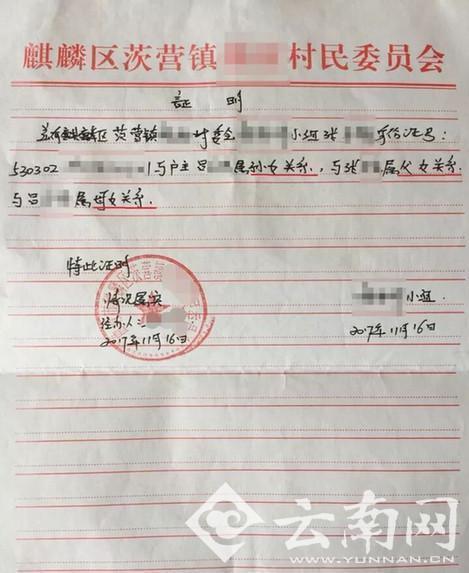 麒麟区茨营镇 村民委员会
证明
兹有麒麟区茨营镇 村委会 小组张 身份证号:
530302 1与户主吕 属孙女关系,与张 属父女关系
与吕 属母女关系.
特此证明
情况属实
经办人:
2017年11月16日
小组
2017年11月16日
云南网
WWW.YUNNAN.CN